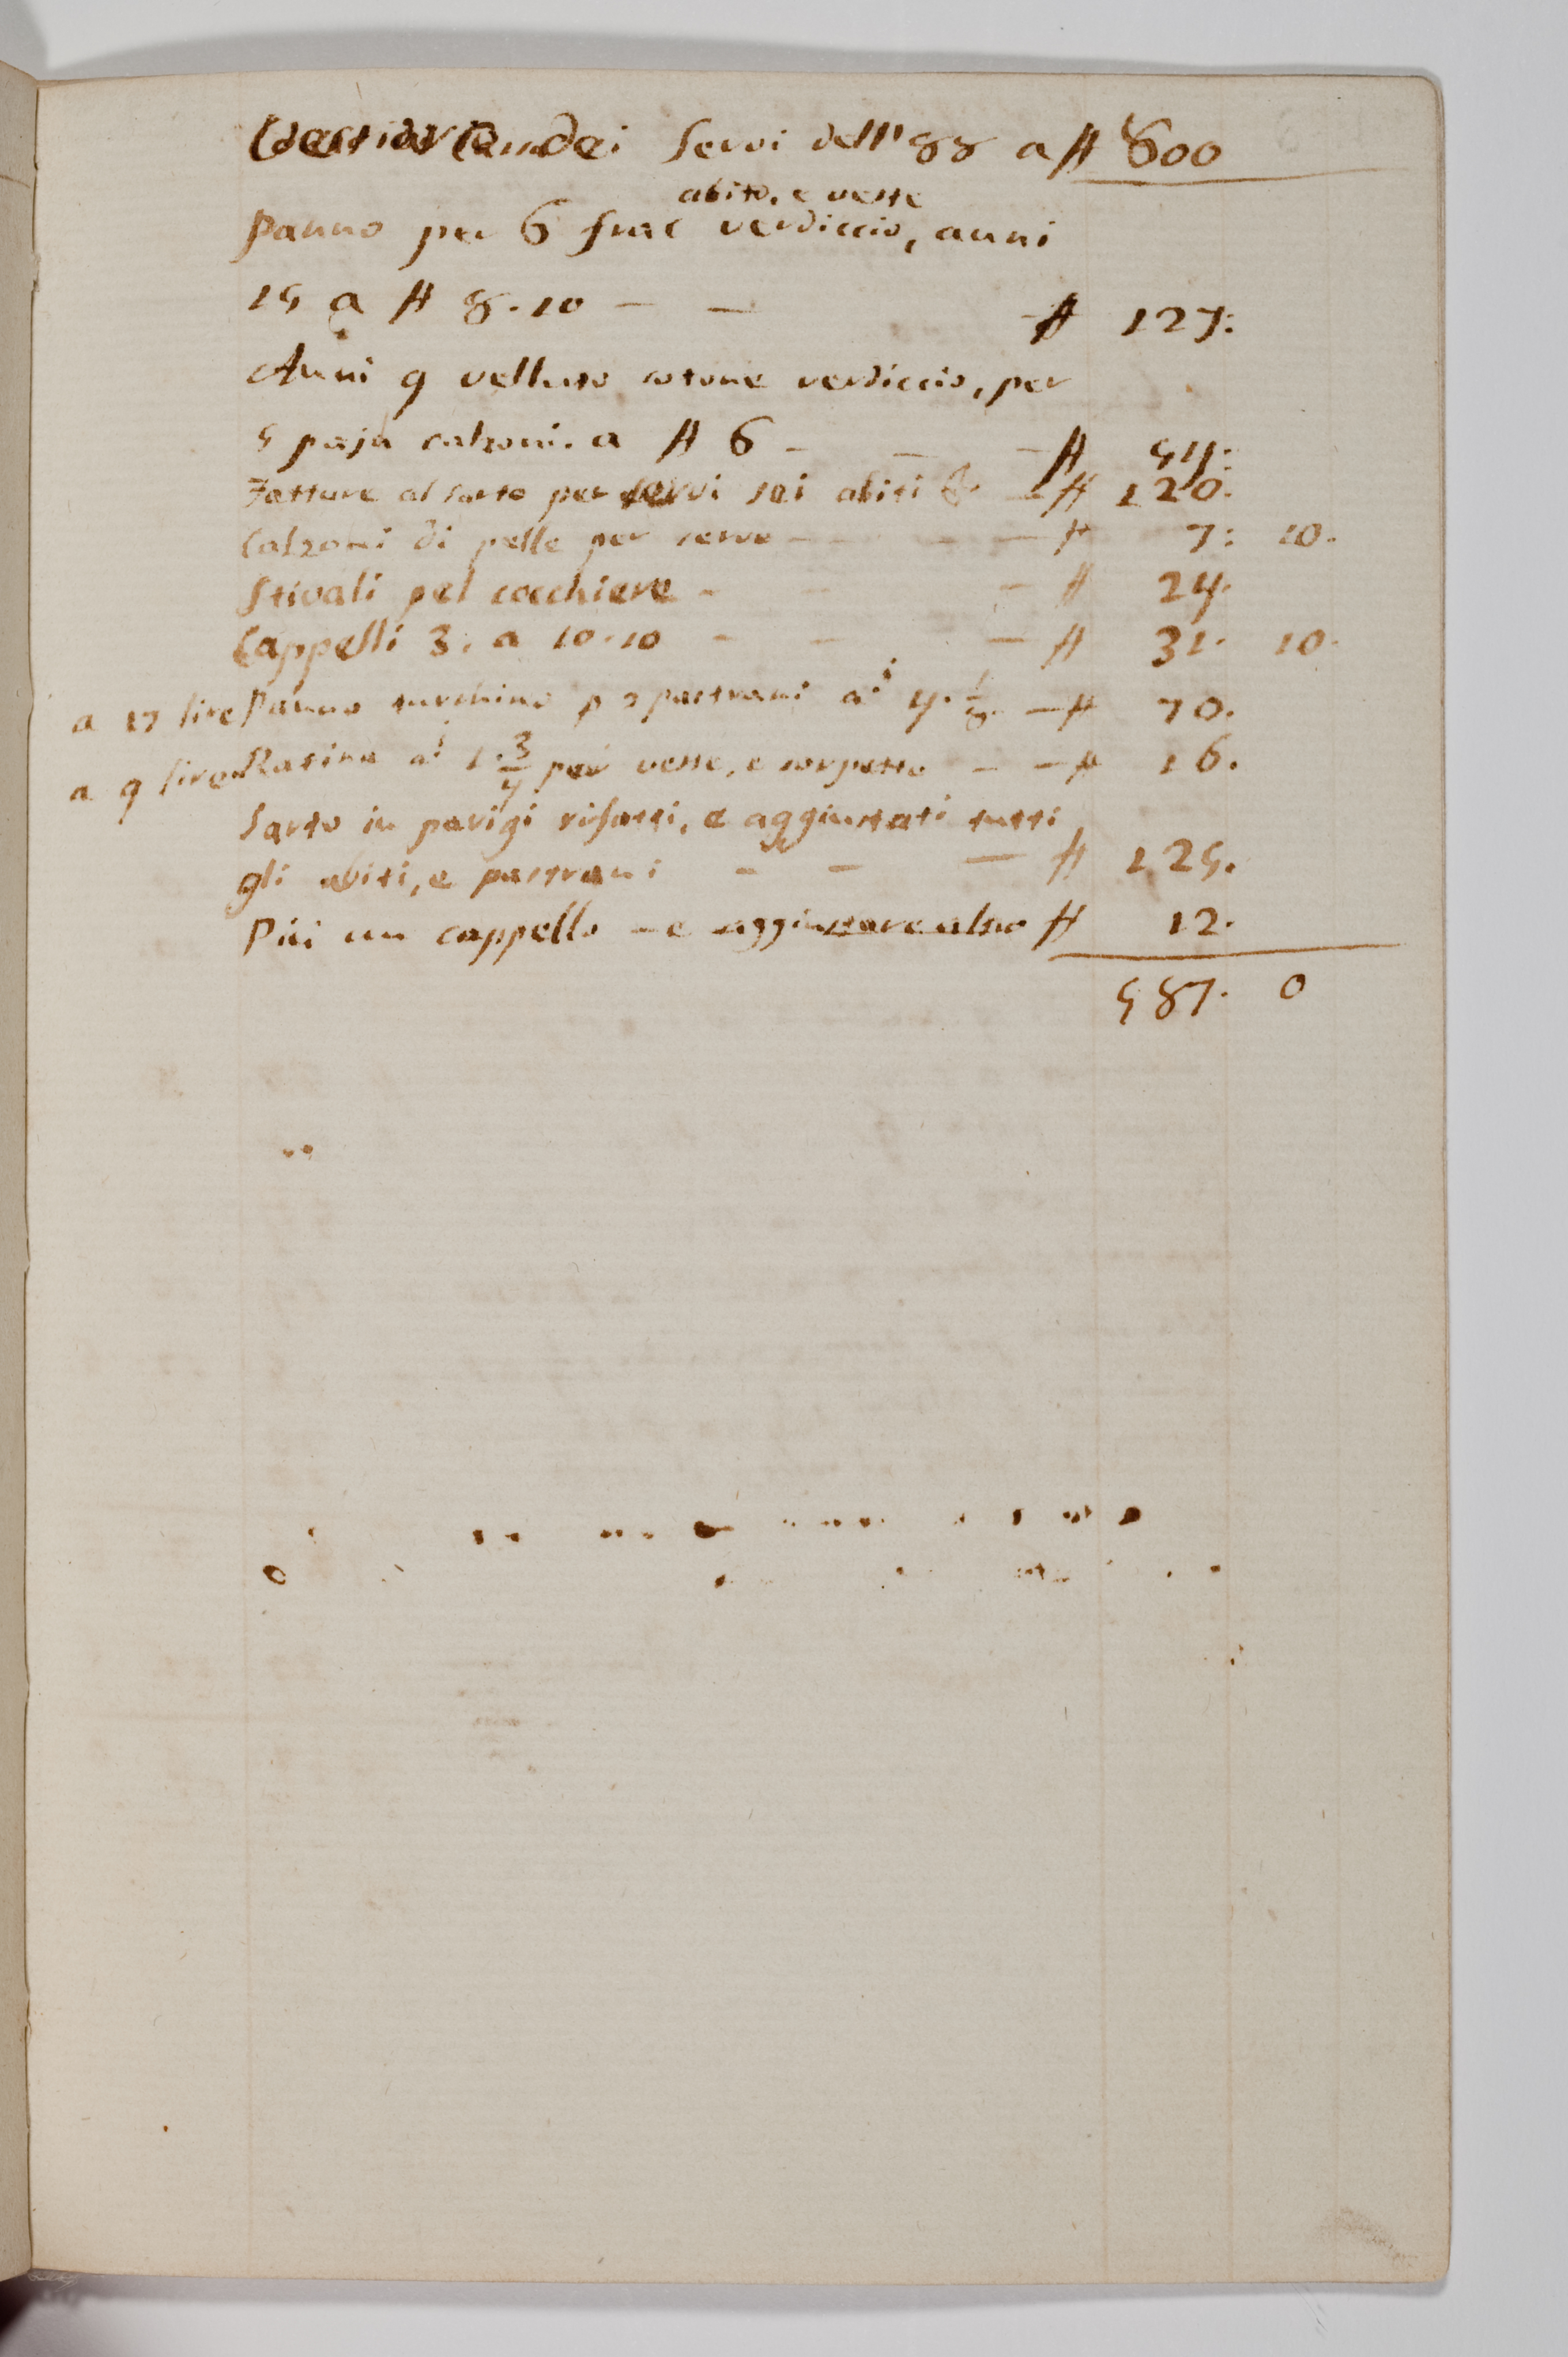 Vestiario dei Servi dell' 88 a ₶ 800
abito, e veste
Panno per 6 frac verdiccio, auni
15 a ₶ 8.10 — — — ₶ 127:
Auni 9 velluto cotone verdiccio, per
5 paja calzoni. a ₶ 6 — — — ₶ 54:
Fatture al sarto per servi sei abiti &. — ₶ 120.
Calzoni di pelle per servo — — — ₶ 7: 10.
Stivali pel cocchiere — — — ₶ 24.
Cappelli 3. a 10.10 — — — ₶ 31. 10.
a 17 lire Panno turchino p 2 pastrani a.i 4. 1/8. — ₶ 70.
a 9 lire Ratina a.i 1. 3/4 per veste, e corpetto — — ₶ 16.
Sarto in parigi rifatti, e aggiustati tutti
gli abiti, e pastrani — — — ₶ 125.
Più un cappello — e aggiustare altro ₶ 12.
587. 0